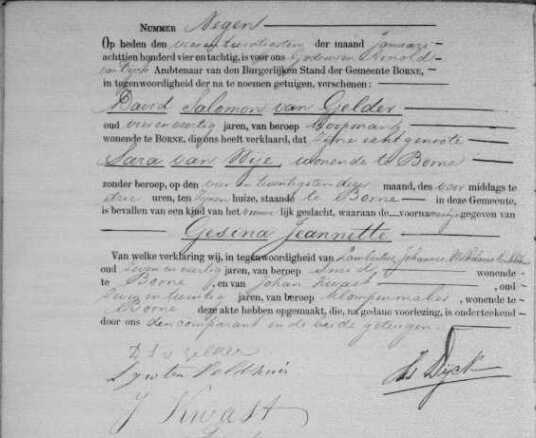 NUMMER Negen
Op heden den vier en twintigsten der maand Januari
achttien honderd vier en tachtig, is voor ons Arnold
van Dijck Ambtenaar van den Burgerlijken Stand der Gemeente BORNE,
in tegenwoordigheid der na te noemen getuigen, verschenen:
David Salomon van Gelder
oud vier en veertig jaren, van beroep Koopman
wonende te BORNE, dig ons heeft verklaard, dat zijne echtgenoote
Sara van Nije, wonende te Borne
zonder beroep, op den vier en twintigsten dezer maand, des voor middags te
drie uren, ten zijnen huize, staande te Borne in deze Gemeente,
is bevallen van een kind van het vrouwelijk geslacht, waaraan de voornamen zijn gegeven van
Gesina Jeannette
Van welke verklaring wij, in tegenwoordigheid van Lambertus Johannes
oud zeven en veertig jaren, van beroep smid wonende
te Borne, en van Johan Kwast, oud
zeven en twintig jaren, van beroep klompenmaker, wonende te
Borne deze akte hebben opgemaakt, die, na gedane voorlezing, is onderteekend
door ons den comparant en de beide getuigen.
D S v Gelder
L J W ten Veldhuis
Dijck
J Kwast